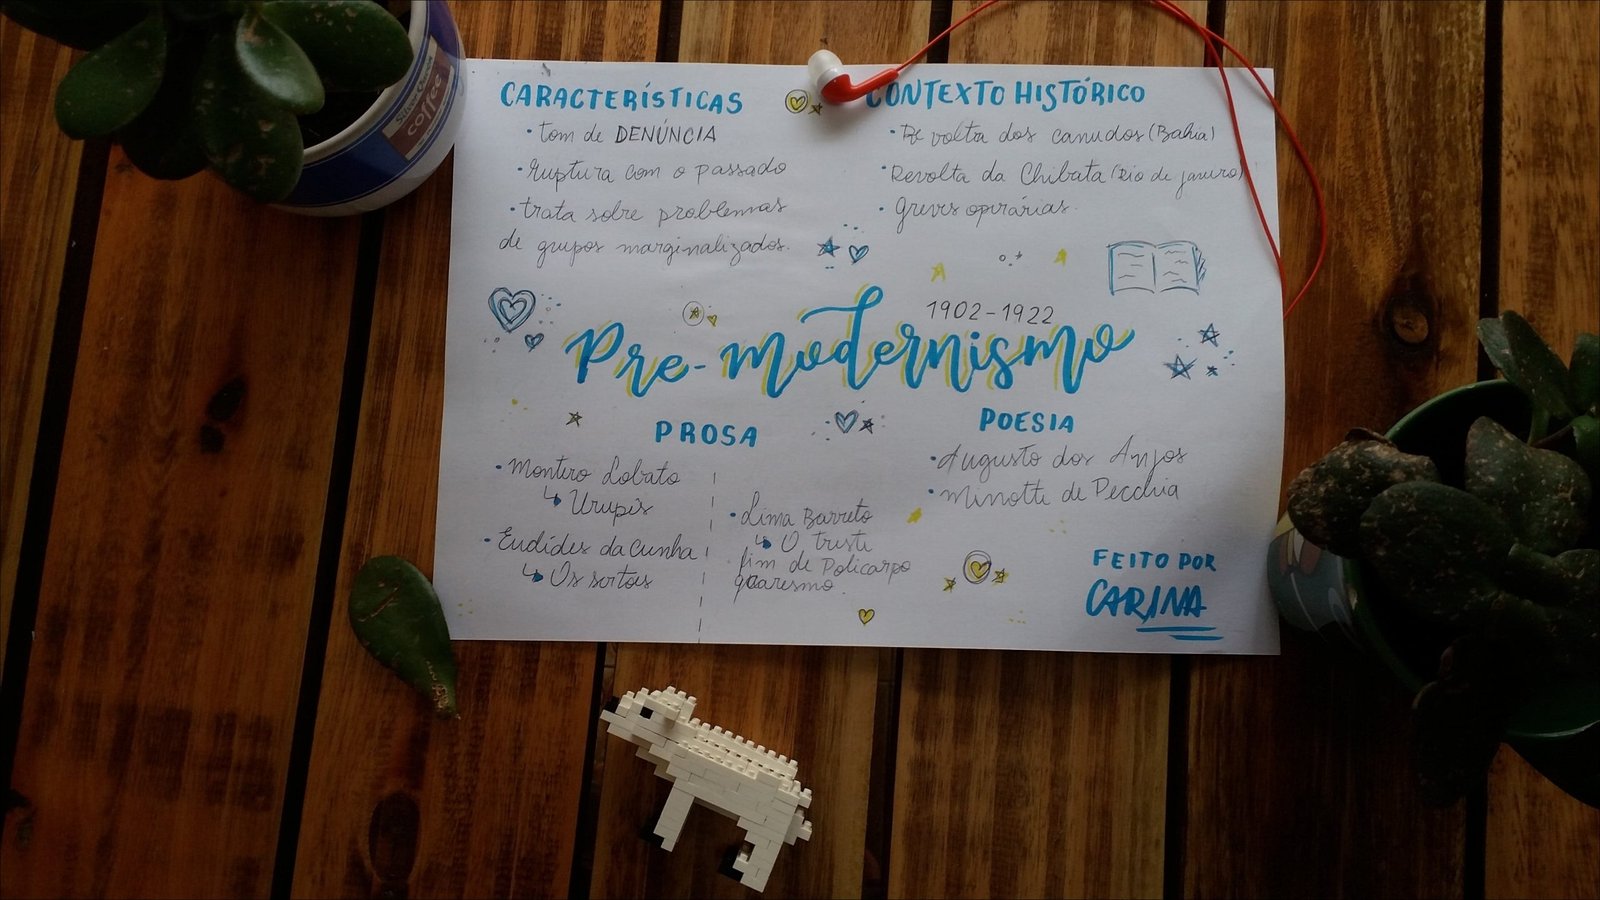 Silva Chacon
coffee
CARACTERÍSTICAS
• tom de DENÚNCIA
• Ruptura com o passado
• trata sobre problemas
de grupos marginalizados.
CONTEXTO HISTÓRICO
• Revolta dos canudos (Bahia)
• Revolta da Chibata (Rio de janeiro)
• Greves operárias.
1902-1922
Pre-modernismo
PROSA
• Monteiro Lobato
↳ Urupês
• Euclides da Cunha
↳ Os sertões
• Lima Barreto
↳ O triste
fim de Policarpo
quaresmo.
POESIA
• Augusto dos Anjos
• Minotti de Pecchia
FEITO POR
CARINA